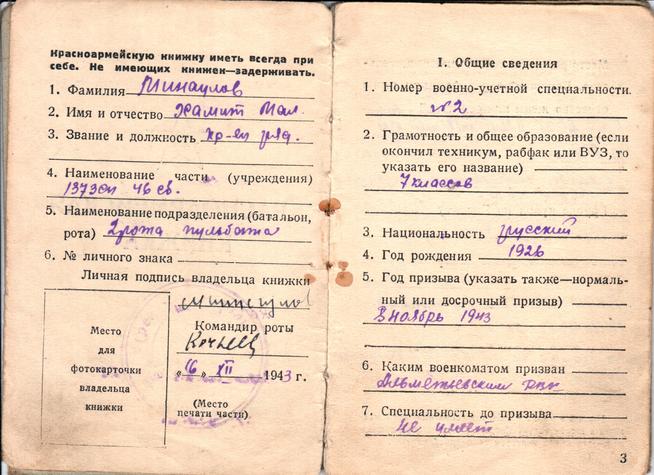 Красноармейскую книжку иметь всегда при
себе. Не имеющих книжек—задерживать.
1. Фамилия Минаулов
2. Имя и отчество Хамит
3. Звание и должность кр-ец ряд.
4. Наименование части (учреждения)
137 зсп 46 сб.
5. Наименование подразделения (батальон,
рота) 2 рота пульбата
6. № личного знака
Личная подпись владельца книжки
Командир роты
„16“ XII 1943 г.
(Место
печати части)
Место
для
фотокарточки
владельца
книжки
I. Общие сведения
1. Номер военно-учетной специальности.
№2
2. Грамотность и общее образование (если
окончил техникум, рабфак или ВУЗ, то
указать его название)
7 классов
3. Национальность русский
4. Год рождения 1926
5. Год призыва (указать также—нормаль-
ный или досрочный призыв)
ноябрь 1943
6. Каким военкоматом призван
Альметьевским рвк
7. Специальность до призыва
не имеет
3